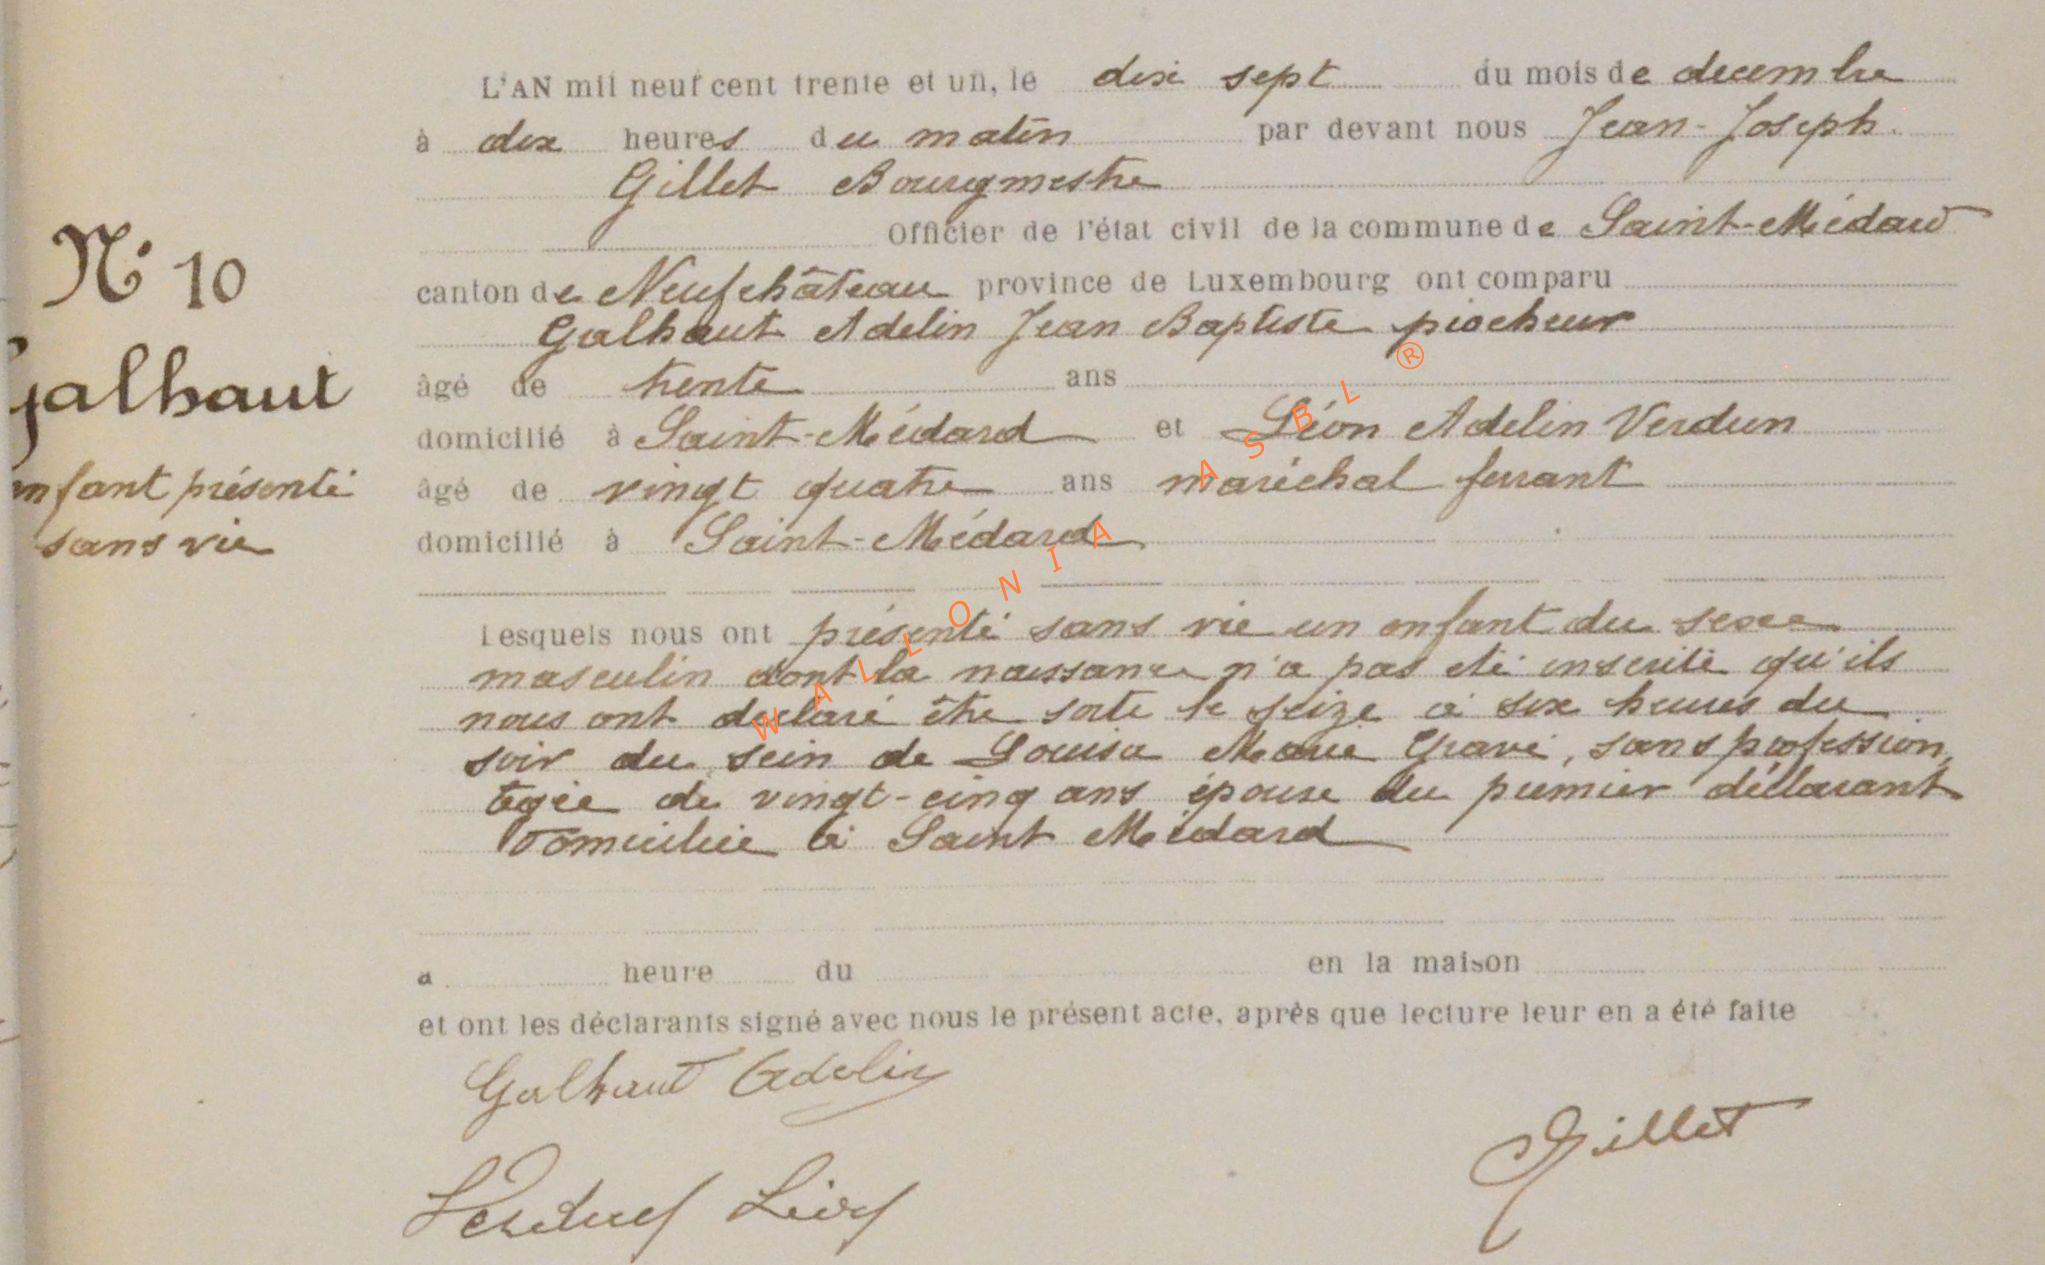 L'AN mil neuf cent trente et un, le dix sept du mois de decembre
à dix heures du matin par devant nous Jean-Joseph
Gillet Bourgmestre
Officier de l'état civil de la commune de Saint-Médard
canton de Neufchâteau province de Luxembourg ont comparu
Galhaut Adelin Jean Baptiste piocheur
âgé de trente ans
domicilié à Saint-Médard et Léon Adelin Verdun
âgé de vingt quatre ans maréchal ferrant
domicilié à Saint-Médard
N° 10
Galhaut
enfant présenté
sans vie
lesquels nous ont présenté sans vie un enfant du sexe
masculin dont la naissance n'a pas été inscrite qu'ils
nous ont déclaré être sorte le seize à six heures du
soir du sein de Louisa Marie Gravé, sans profession,
âgée de vingt-cinq ans épouse du premier déclarant
domiciliée à Saint Médard
a heure du en la maison
et ont les déclarants signé avec nous le présent acte, après que lecture leur en a été faite
Galhaut Adelin
Gillet
Verdun Léon
WALLONIA ASBL ®